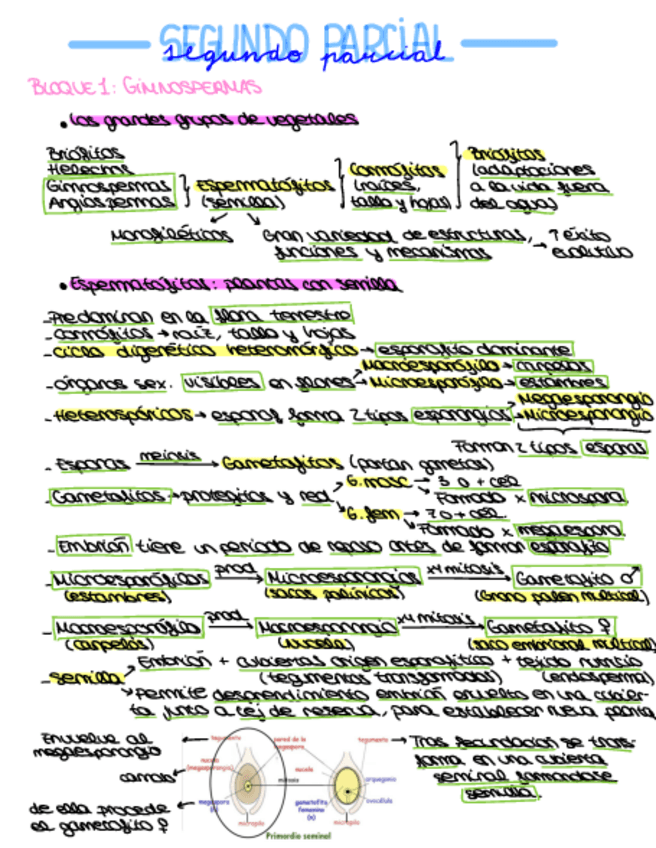 SEGUNDO PARCIAL
segundo parcial
BLOQUE 1: GIMNOSPERMAS
• Los grandes grupos de vegetales
Briófitos
Helechos
Gimnospermas
Angiospermas
Espermatófitos
(semilla)
Cormófitos
(raíces,
tallo y hojas)
Briófitos
(adaptaciones
a la vida fuera
del agua)
Monofiléticos
Gran variedad de estructuras,
funciones y mecanismos
→ ↑ éxito
evolutivo
• Espermatófitos: plantas con semilla
- Predominan en la flora terrestre
- Cormófitos → raíz, tallo y hojas
- Ciclo digenético heteromórfico → esporofito dominante
- órganos sex. visibles en flores
Macroesporófilo → carpelos
Microesporófilo → estambres
- Heterospóricos → esporof forma 2 tipos esporangios
Megaesporangio
Microesporangio
Forman 2 tipos esporas
- Esporas meiosis → Gametofitos (portan gametos)
- Gametofitos → protegidos y red
G. masc → 3 o + cél
Formado x microspora
G. fem → 7 o + cél.
Formado x megaespora.
- Embrión tiene un periodo de reposo antes de formar esporofito
- Microesporófilos prod → Microesporangios x4 mitosis → Gametofito ♂
(estambres) (sacos polínicos) (Grano polen multicel)
- Macroesporófilo prod → Macroesporangio x4 mitosis → Gametofito ♀
(carpelos) (nucela) (saco embrional multicel)
- semilla
Embrión + cubiertas origen esporofítico + tejido nutricio
(tegumentos transformados) (endosperma)
Permite desprendimiento embrión envuelto en una cubier-
ta junto a tej de reserva, para establecer nueva planta
Envuelve al
megaesporangio
de ella procede
el gametofito ♀
tegumento
nucela
(megaesporangio)
megaspora
(n)
micropilo
pared de la
megaspora
nucela
mitosis
gametofito
femenino
(n)
tegumento
arquegonio
ovocélula
micropilo
Primordio seminal
→ Tras fecundación se trans-
forma en una cubierta
seminal formándose
semilla.